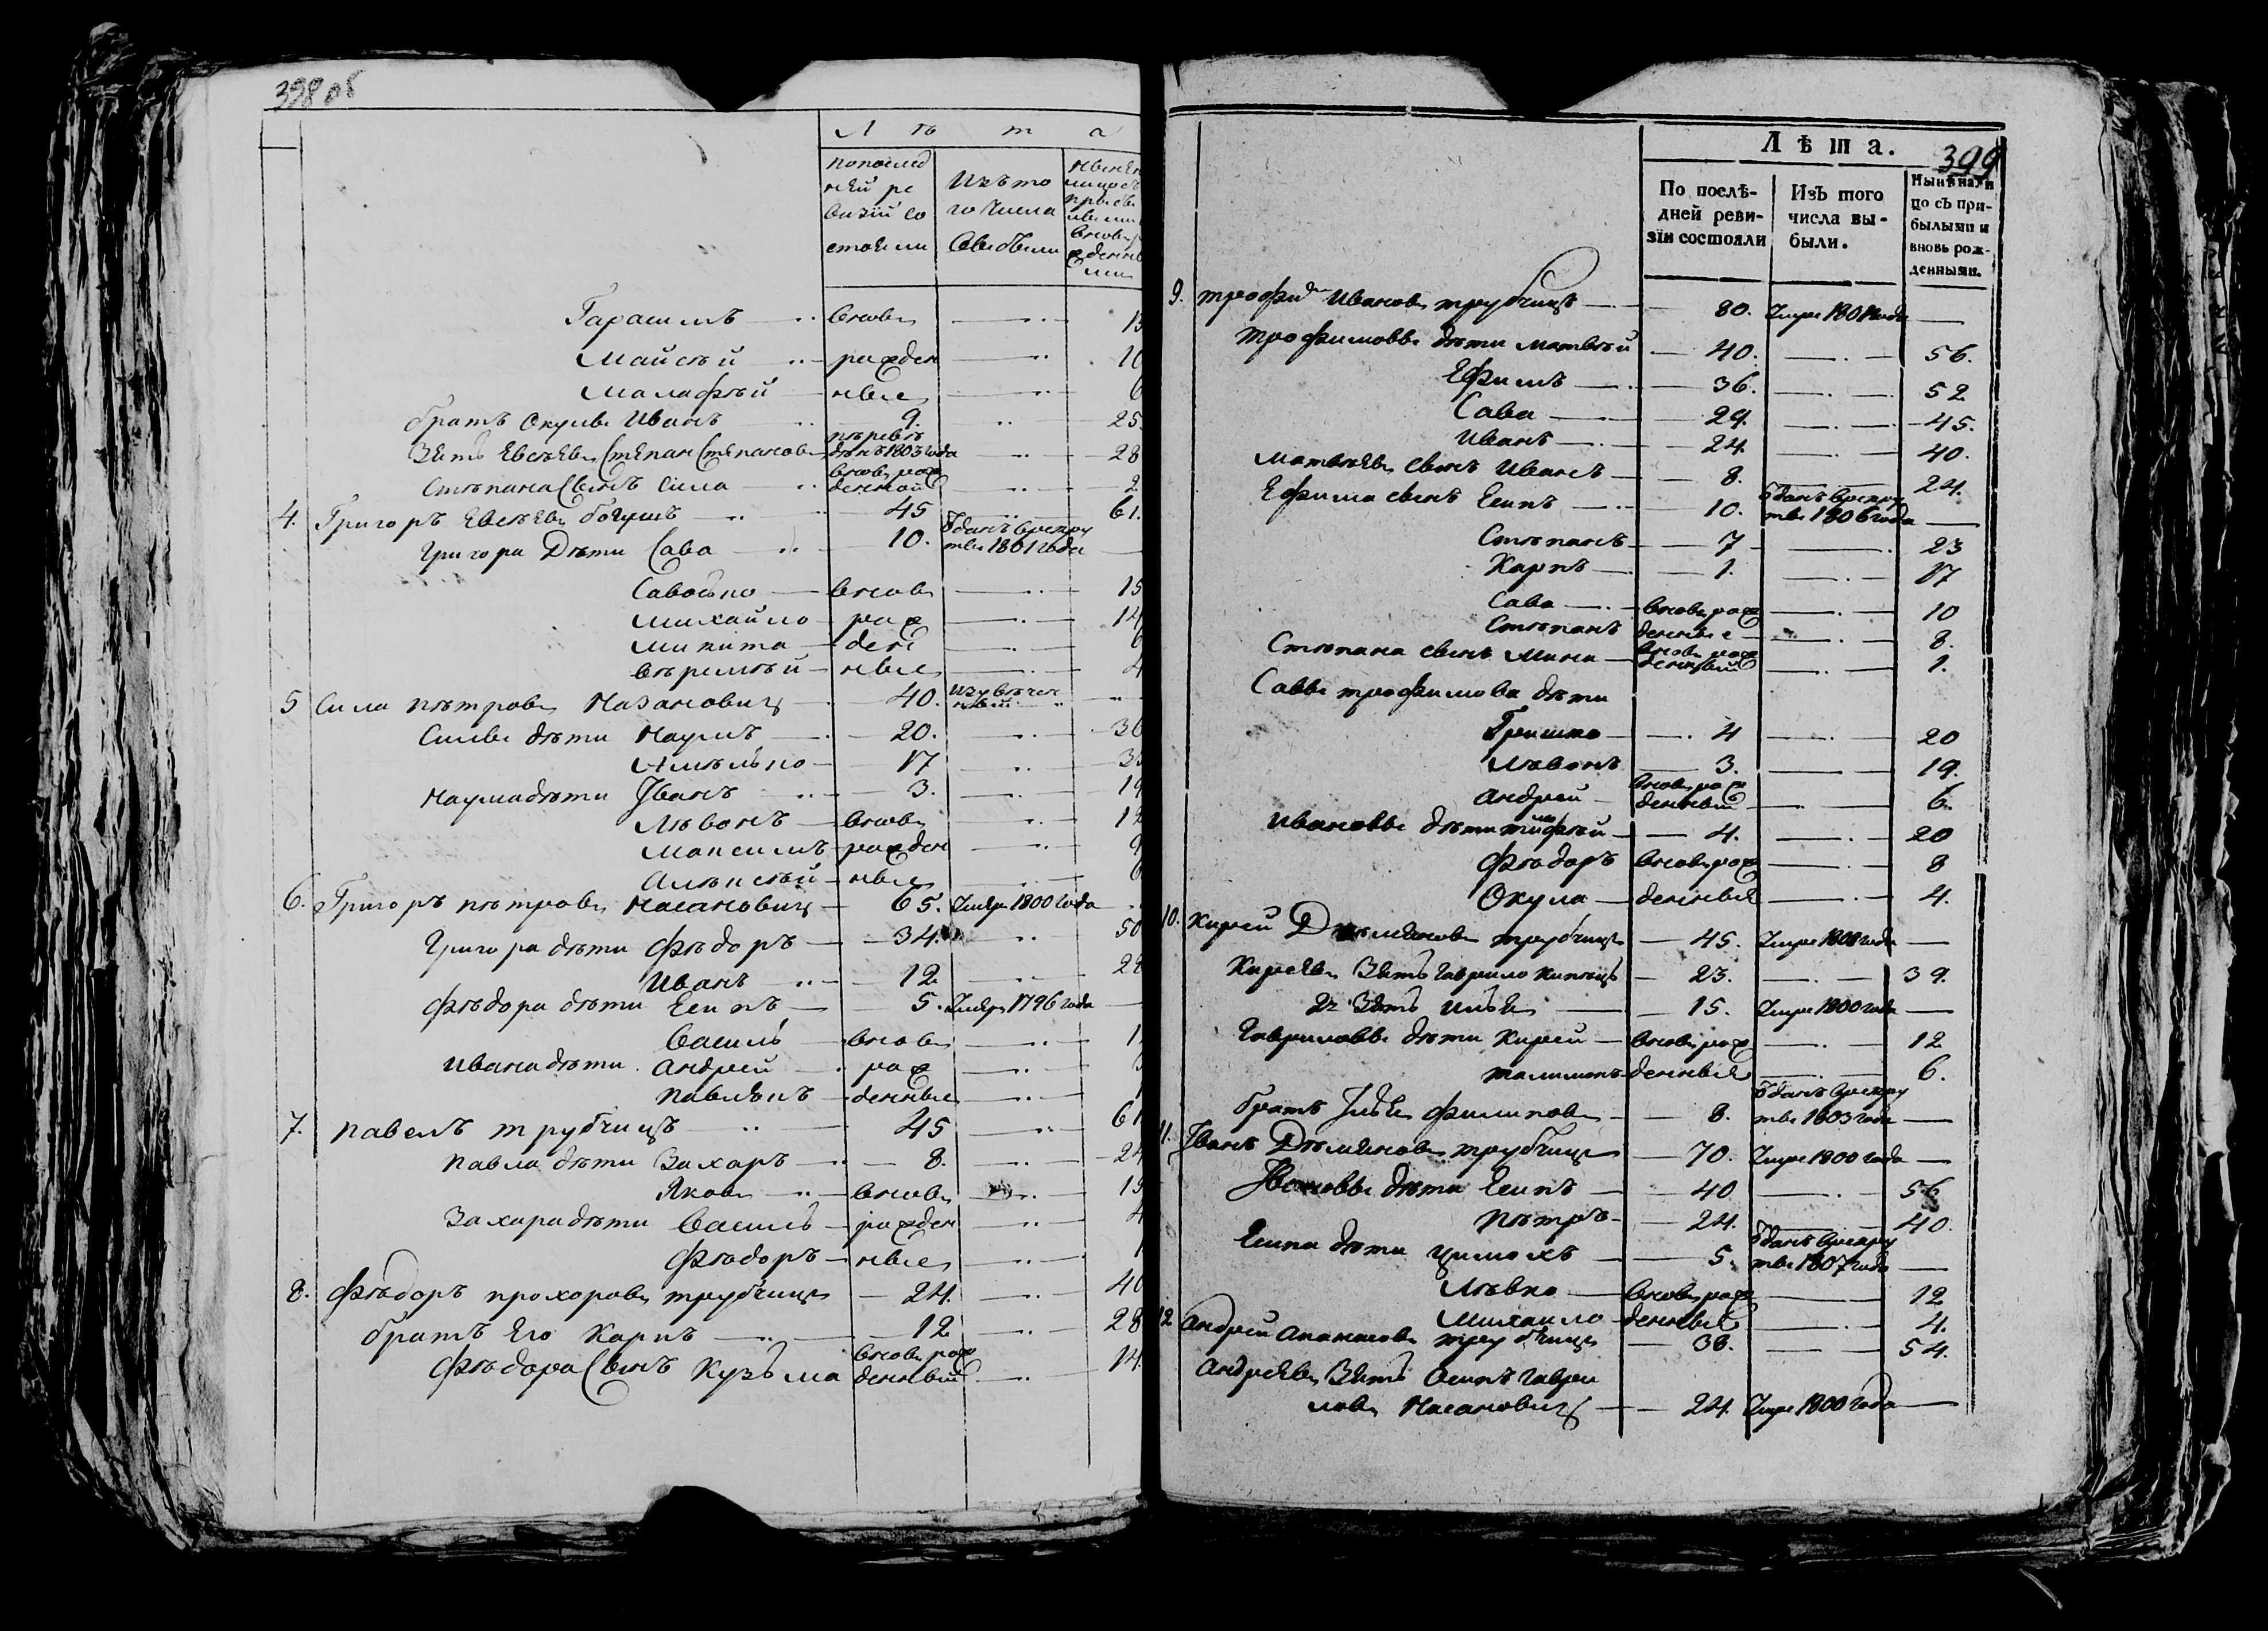 398 об
Л ѣ т а
по послед
ней ре
визіи со
стояли
Изъ то
го числа
выбыли
Гарасимъ — вновь — 13
Майсѣй — рожден — 10
Малафѣй — ные — 6
братъ Окулы Иванъ 9. 25
Зять Евсѣевъ Стѣпан Стѣпановъ 1803 года 28
Стѣпана Сынъ Сила — вновь рож
денной 2
4. Григоръ Евсѣевъ богушъ 45 61.
Григора Дѣти Сава 10. Отданъ врекру
ты 1801 года —
вновь — 15
Михайло — рож — 14
Микита — ден — 6
Ерѣмѣй — ные — 4
5 Сила пѣтровъ 40.
Силы дѣти Наумъ — 20. 36
17 33
Наума дѣти Iванъ 3. 19
Лѣвонъ — вновь 12
Максимъ — рожден 9
Алѣксѣй — ные 6
6. Григоръ пѣтровъ Касановичъ — 65. Умеръ 1800 года
Григора дѣти Фѣдоръ — 34. 50
Иванъ 12 28
Фѣдора дѣти Есипъ — 5. Умеръ 1796 года —
Василь — вновь
Ивана дѣти Андрей рож
— денные
7. павелъ трубчицъ 45 61
Павла дѣти Захаръ — 8. 24
Яковъ — вновь 15
Захара дѣти Василь — рожден 4
Фѣдоръ — ные 1
8. Фѣдоръ прохоровъ трубчицъ — 24. 40
братъ Его Карпъ — 12 28
Фѣдора Сынъ Кузъма вновь рож
денный 14.
399
Лѣта.
По послѣ-
дней реви-
зіи состояли
Изъ того
числа вы-
были.
Нынѣ нали
цо съ при-
былыми и
вновь рож-
денными.
9. трофим Ивановъ трубчицъ — 80. Умре 1801 года —
Трофимовы дѣти Матвѣй — 40. — 56.
Ефимъ — 36. — 52
Сава — 29. — 45.
Иванъ — 24. — 40.
Матвѣевъ сынъ Иванъ — 8. — 24.
Ефима сынъ Есипъ — 10. Отданъ врекру
ты 1806 года —
Стѣпанъ — 7 — 23
Карпъ — 1. — 17
Сава — вновь рож — 10
Стѣпанъ денные — 8.
Стѣпана сынъ Мина — вновь рож
денный — 1.
Саввы трофимова дѣти
Гришко — 4 — 20
Лѣвонъ — 3. — 19.
Андрей — вновь рож
денный — 6.
Ивановы дѣти тимофѣй — 4. — 20
Фѣдоръ вновь рож — 8
Окула — денные — 4.
10. Кирей Дѣмяновъ трубчицъ — 45. Умре 1808 года —
Киреевъ Зять Гаврило — 23. — 39.
2й Зять — 15. Умре 1800 года —
Гавриловы дѣти Кирей — вновь рож — 12
денные — 6.
братъ филиповъ — 8. Отданъ врекру
ты 1803 года —
11. Iванъ Дѣмяновъ трубчицъ — 70. Умре 1800 года —
Iвановы дѣти Есипъ — 40 — 56
Пѣтръ — 24. — 40.
Есипа дѣти Цимохъ — 5. Отданъ врекру
ты 1807 года —
Лѣвко — вновь рож — 12
Михаило — денные — 4.
12 Андрей Апанасовъ трубчицъ — 38. — 54.
Андреевъ Зять Осипъ Гаври
ловъ Касановичъ — 24. Умре 1800 года —